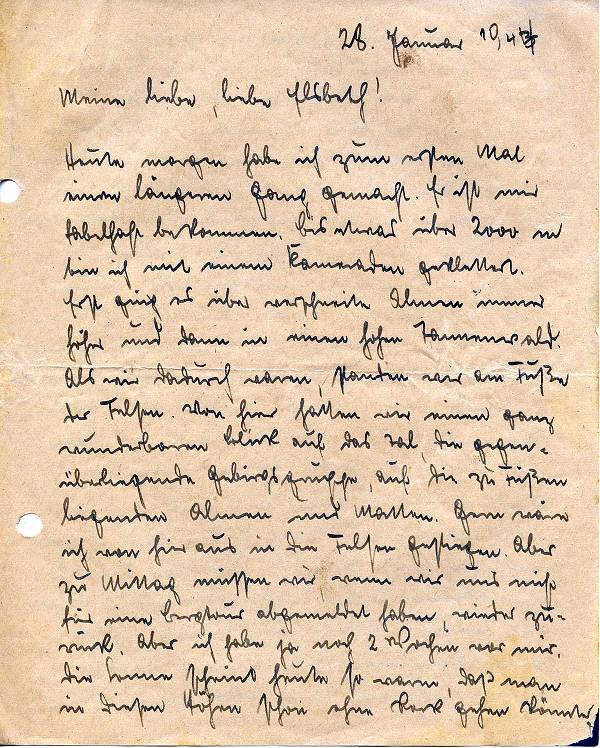 28. Januar 1943
Meine liebe, liebe Elsbeth!
Heute morgen habe ich zum ersten Mal
einen längeren Gang gemacht. Er ist mir
fabelhaft bekommen. Bis etwas über 2000 m
bin ich mit einem Kameraden geklettert.
Erst ging es über verschneite Almen immer
höher und dann in einen hohen Tannenwald.
Als wir dadurch waren, standen wir am Fuße
der Felsen. Von hier hatten wir einen ganz
wunderbaren Blick auf das Tal, die gegen-
überliegende Gebirgsgruppe, auf die zu Füßen
liegenden Almen und Matten. Gern wäre
ich von hier aus in die Felsen gestiegen. Aber
zu Mittag müssen wir, wenn wir uns nicht
für eine Bergtour abgemeldet haben, wieder zu-
rück. Aber ich habe ja noch 2 Wochen vor mir.
Die Sonne scheint heute so warm, daß man
in diesen Höhen schon ohne Rock gehen könnte.